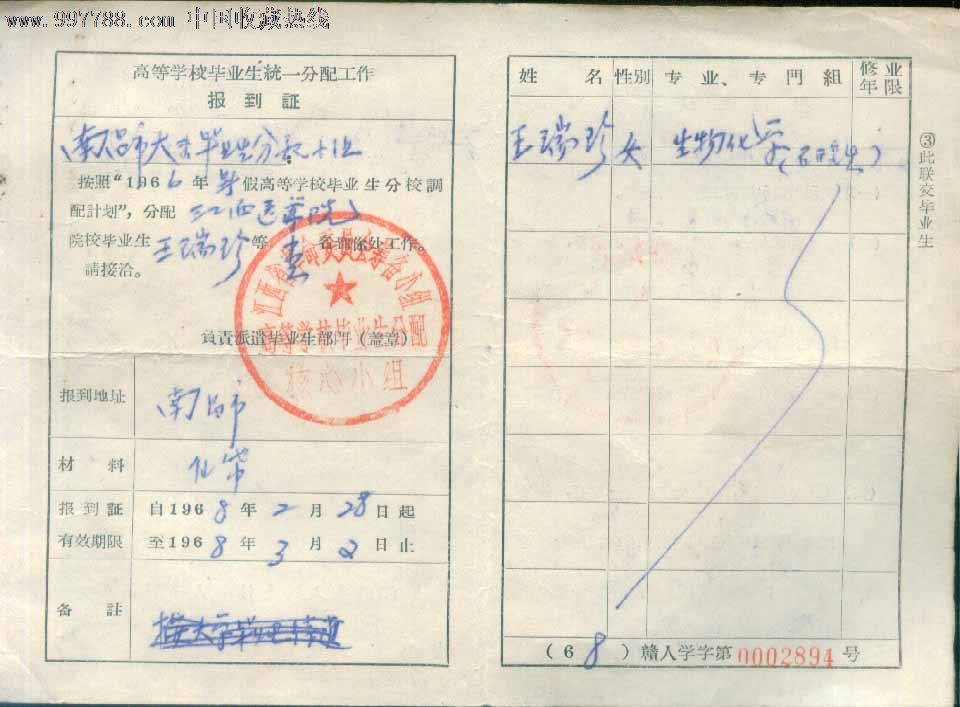 www.997788.com 中国收藏热线
高等学校毕业生統一分配工作
报到証
南昌市大专毕业生分配小组
按照“1966年暑假高等学校毕业生分校調
配計划”，分配江西医学院
院校毕业生王瑞珍等壹名前你处工作。
請接洽。
江西省革命委员会筹备小组
高等学校毕业生分配
核心小组
負責派遣毕业生部門（盖章）
报到地址 南昌市
材料 自带
报到証 自1968年2月28日起
有效期限 至1968年3月2日止
备註
姓名 性别 专业、专門組 修业年限
王瑞珍 女 生物化学（研究生）
③此联交毕业生
（68）赣人学字第0002894号